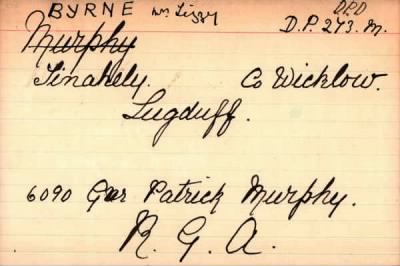 BYRNE Mrs Lizzy DPD
D.P. 273. M.
Murphy
Tinahely. Co Wicklow.
Lugduff.
6090 Gnr Patrick Murphy.
R. G. A.